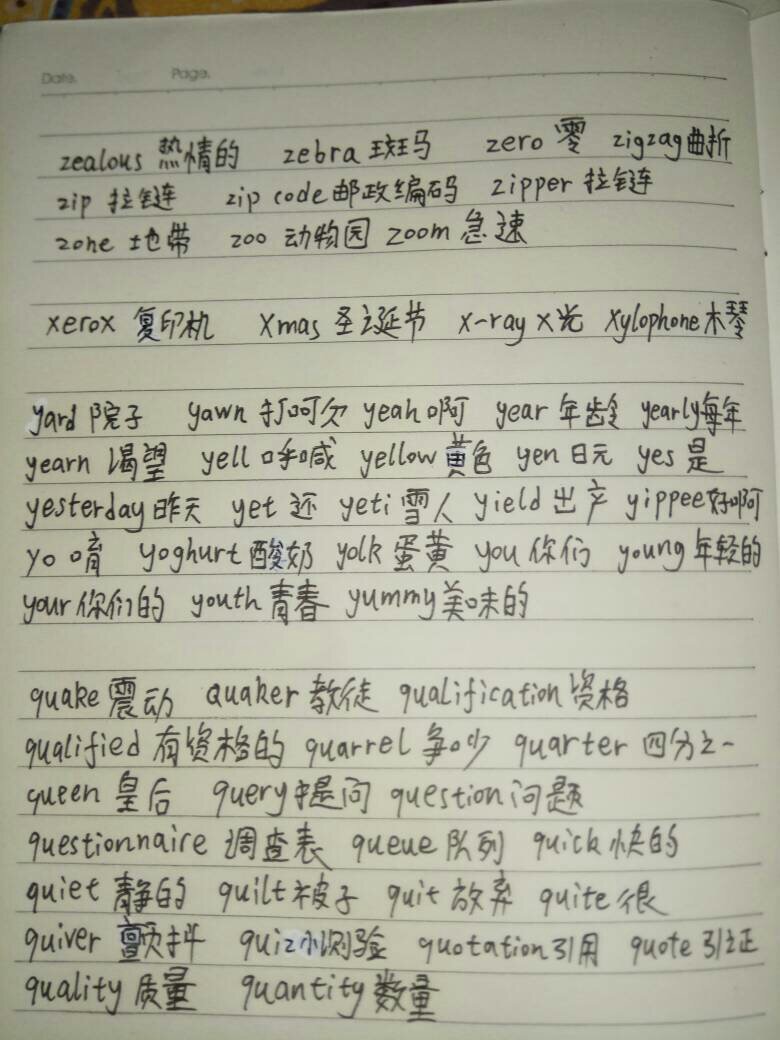 Date. Page.
zealous 热情的 zebra 斑马 zero 零 zigzag 曲折
zip 拉链 zip code 邮政编码 zipper 拉链
zone 地带 zoo 动物园 zoom 急速
xerox 复印机 Xmas 圣诞节 x-ray X光 xylophone 木琴
yard 院子 yawn 打呵欠 yeah 啊 year 年龄 yearly 每年
yearn 渴望 yell 呼喊 yellow 黄色 yen 日元 yes 是
yesterday 昨天 yet 还 yeti 雪人 yield 出产 yippee 好啊
yo 唷 yoghurt 酸奶 yolk 蛋黄 you 你们 young 年轻的
your 你们的 youth 青春 yummy 美味的
quake 震动 Quaker 教徒 qualification 资格
qualified 有资格的 quarrel 争吵 quarter 四分之一
queen 皇后 query 提问 question 问题
questionnaire 调查表 queue 队列 quick 快的
quiet 静的 quilt 被子 quit 放弃 quite 很
quiver 颤抖 quiz 小测验 quotation 引用 quote 引证
quality 质量 quantity 数量